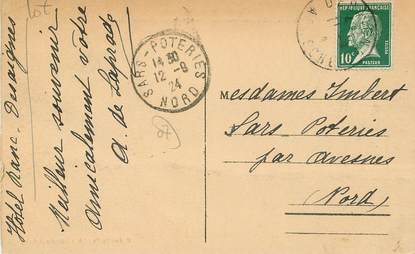 Hôtel Ranc. Desaignes
Meilleur souvenir
amicalement votre
A. de Laprade
SARS-POTERIES
14 30
12 - 9
24
NORD
REPUBLIQUE FRANÇAISE
10c
PASTEUR
Mesdames Imbert
Sars Poteries
par Avesnes
(Nord)